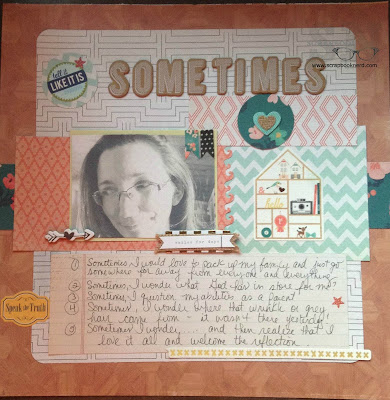 tell it
LIKE IT IS
www.scrapbooknerd.com
SOMETIMES
hello
① Sometimes, I would love to pack up my family and just go
somewhere far away from everyone and everything.
② Sometimes, I wonder what God has in store for me?
③ Sometimes, I question my abilities as a parent
④ Sometimes, I wonder where that wrinkle or grey
hair came from - it wasn't there yesterday
⑤ Sometimes I wonder..... and then realize that I
love it all and welcome the reflection
Speak the Truth